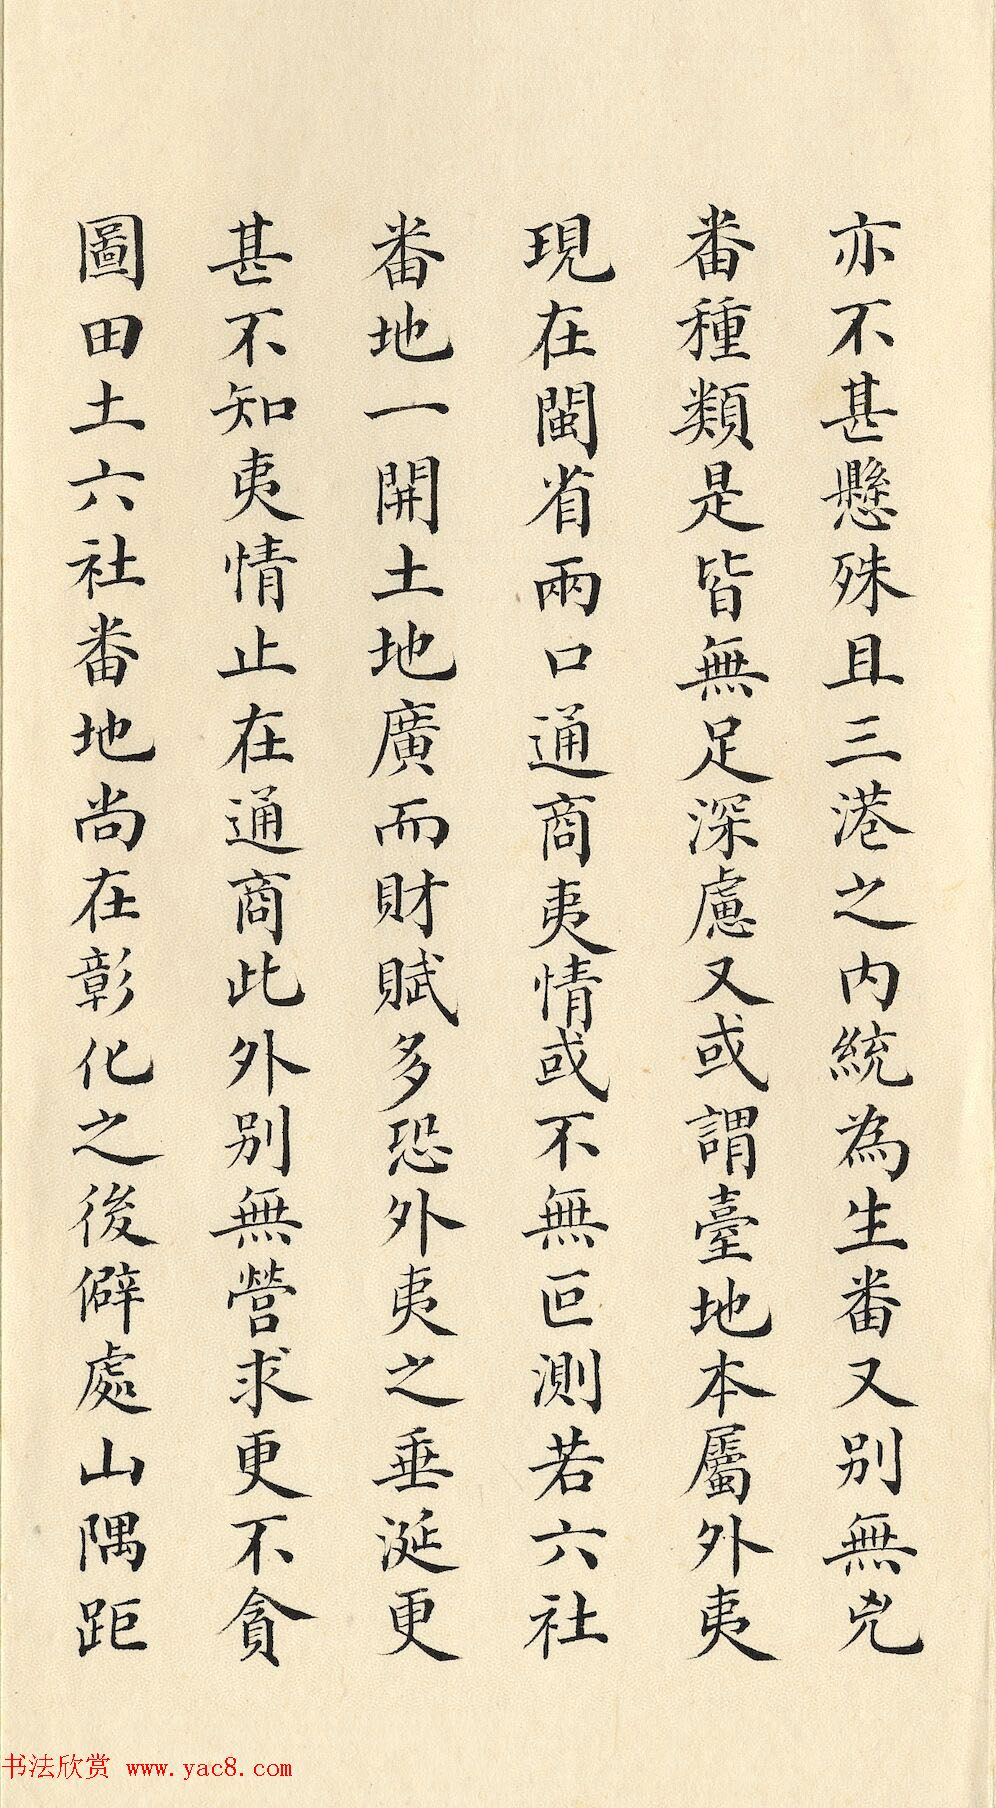 亦不甚懸殊且三港之内統為生番又别無兇
番種類是皆無足深慮又或謂臺地本屬外夷
現在閩省兩口通商夷情或不無叵測若六社
番地一開土地廣而財賦多恐外夷之垂涎更
甚不知夷情止在通商此外别無營求更不貪
圖田土六社番地尚在彰化之後僻處山隅距
书法欣赏 www.yac8.com